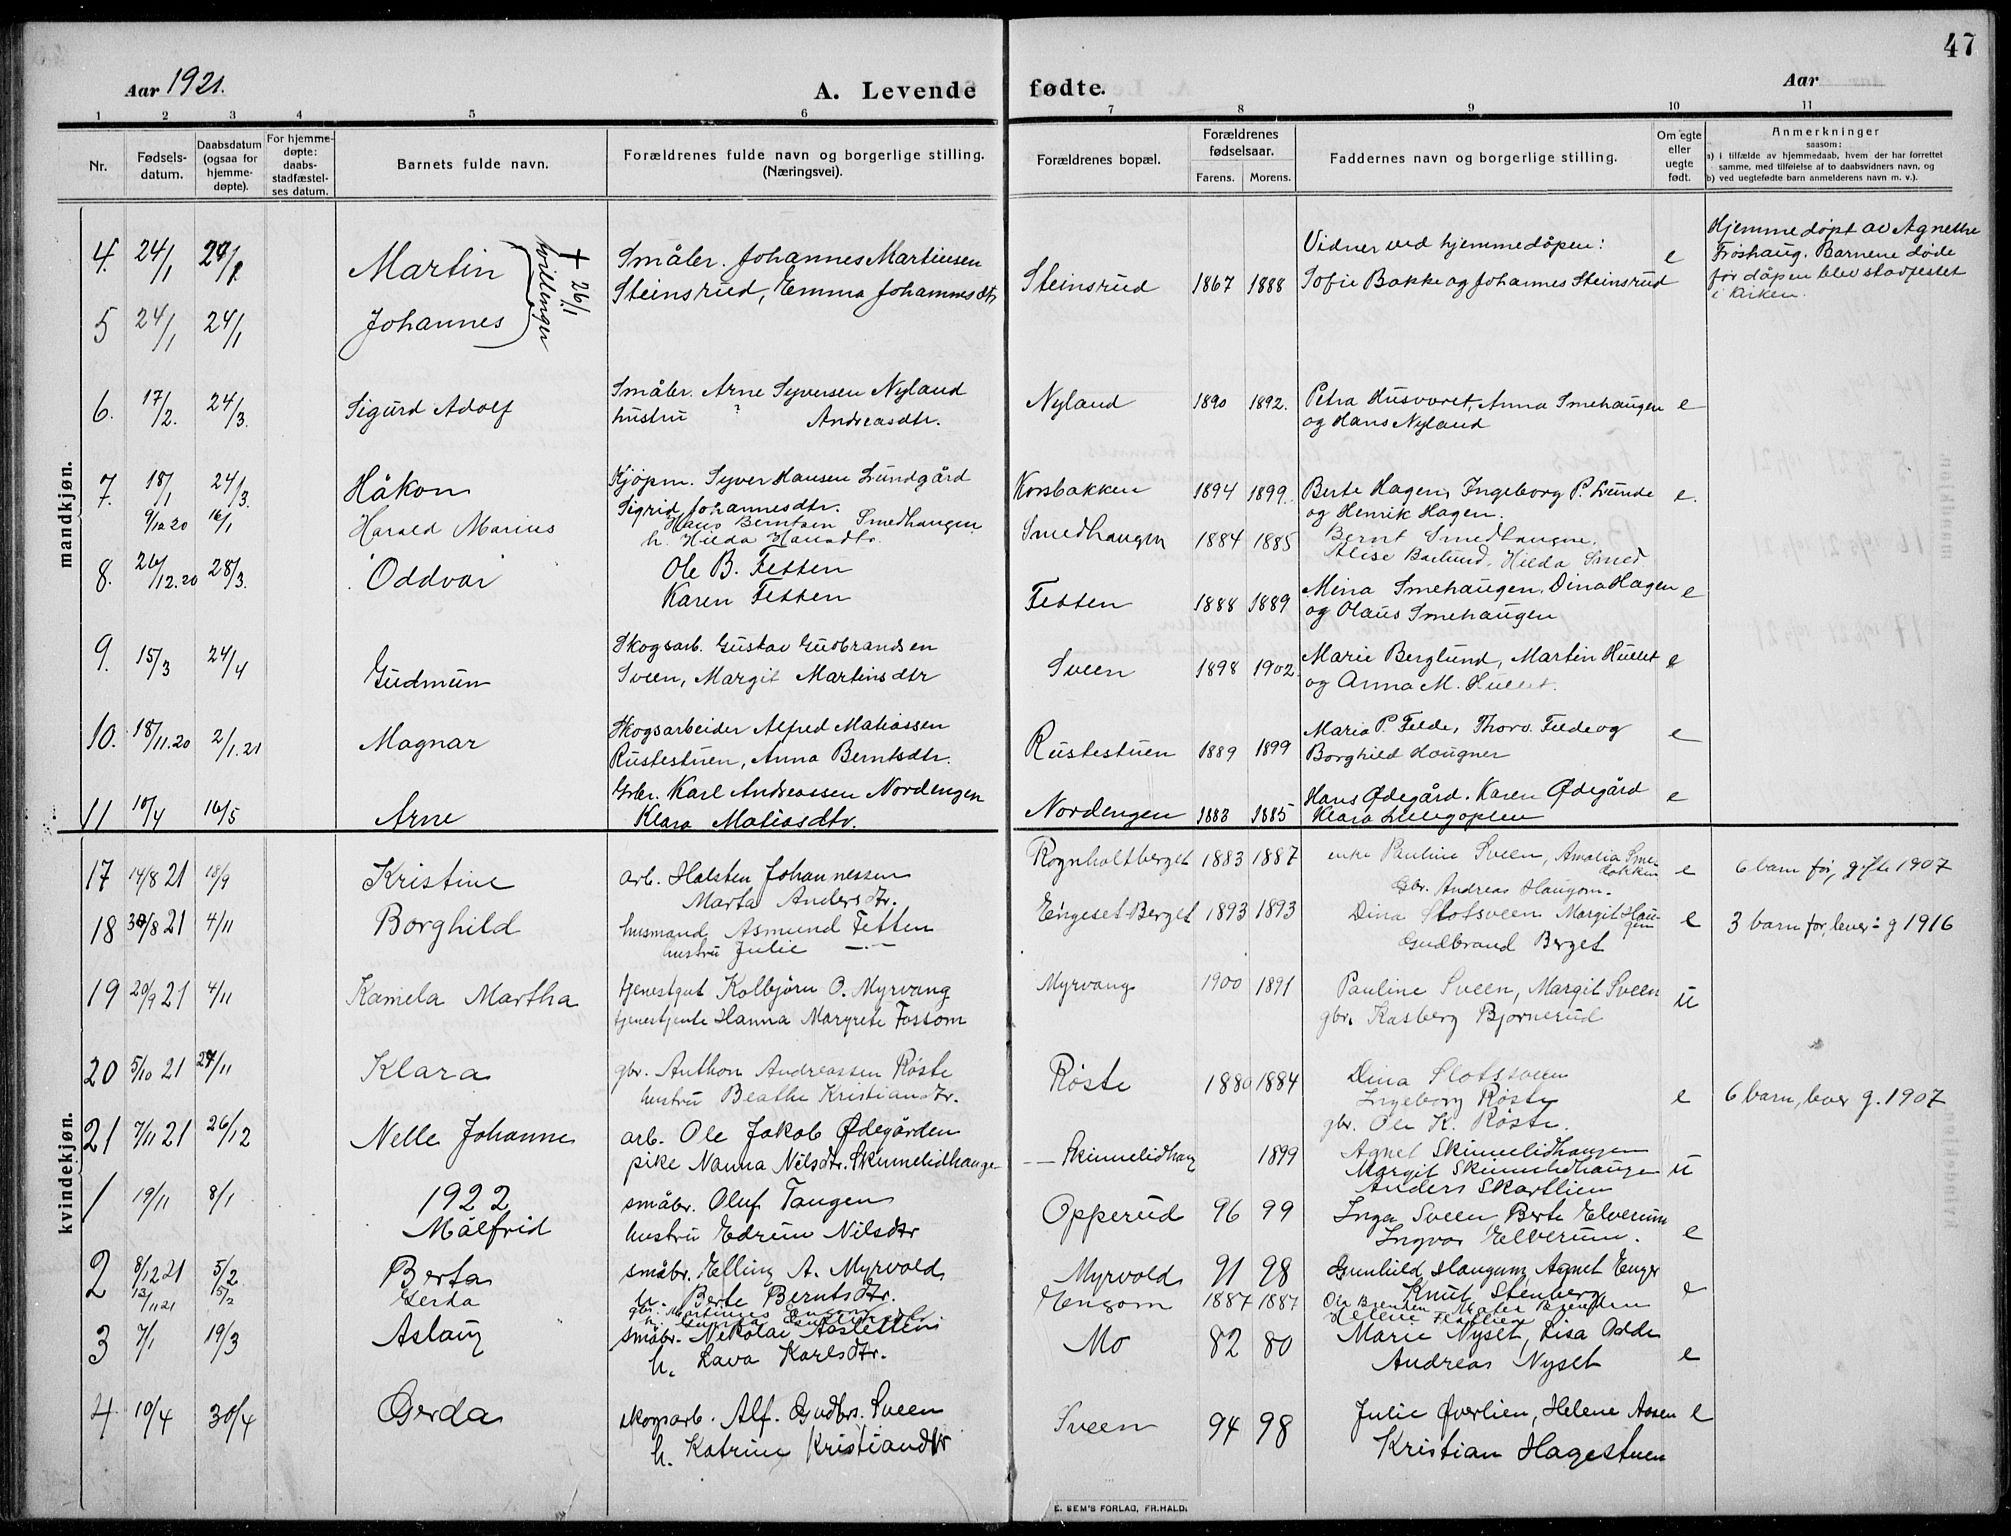 47
Aar 1921.
A. Levende fødte.
Aar
1 2 3 4 5 6 7 8 9 10 11
Nr.
Fødsels-
datum.
Daabsdatum
(ogsaa for
hjemme-
døpte).
For hjemme-
døpte:
daabs-
stadfæstel-
ses datum.
Barnets fulde navn.
Forældrenes fulde navn og borgerlige stilling.
(Næringsvei).
Forældrenes bopæl.
Forældrenes
fødselsaar.
Farens. Morens.
Faddernes navn og borgerlige stilling.
Om egte
eller
uegte
født.
Anmerkninger
saasom:
a) i tilfælde av hjemmedaab, hvem der har forrettet
samme, med tilføielse af to daabsvidners navn, og
b) ved uegtefødte barn anmelderens navn m. v.).
mandkjøn.
4. 24/1 24/1 Martin
tvillinger † 26/1
Småbr. Johannes Martinsen
Steinsrud, Emma Johannesdtr
Steinsrud 1867 1888
Vidner ved hjemmedåpen:
Sofie Bakke og Johannes Steinsrud
e
Hjemmedøpt av Agnethe
Frøshaug. Barnene døde
før dåpen blev stadfestet
i kirken.
5 24/1 24/1 Johannes
6. 17/2. 24/3. Sigurd Adolf
Småbr. Arne Syversen Nyland
hustru ? Andreasdtr.
Nyland 1890 1892.
Petra Husvoret, Anna Smehaugen e
og Hans Nyland
7. 18/1 24/3. Håkon
Kjöpm. Syver Hansen Lundgård
Sigrid Johannesdtr.
Korsbakken 1894 1899.
Berte Hagen, Ingeborg P. Lunde e.
og Henrik Hagen.
9/12 20 16/1 Harald Marius
Hans Berntsen Smedhaugen
h. Hilda Hansdtr.
Smedhaugen 1884 1885
Bernt Smedhaugen.
Alise Baslund, Hilda Smed
8. 26/12.20 28/3. Oddvar
Ole B. Fetten
Karen Fetten
Fetten 1888 1889
Mina Smehaugen, Dina Hagen e
og Olaus Smehaugen
9. 15/3 24/4 Gudmun
Skogsarb. Gustav Gudbrandsen
Sveen, Margit Martinsdtr
Sveen 1898 1902.
Marie Berglund, Martin Hullet e
og Anna M. Hullet.
10. 18/11.20 2/1.21 Magnar
Skogsarbeider Alfred Matiassen
Rustestuen, Anna Berntsdtr.
Rustestuen 1889 1899
Maria P. Felde, Thorv. Felde og e
Borghild Haugner
11 10/4 16/5 Arne
Gbr. Karl Andreassen Nordengen
Klara Matiasdtr.
Nordengen 1883 1885
Hans Ødegård. Karen Ødegård e
Klara
kvindekjøn.
17 14/8 21 18/9 Kristine
arb. Halsten Johannessen
Marta Andersdtr.
Rognholtberget 1883 1887
enke Pauline Sveen, Amalia Sme-
bakken
Gbr. Andreas Haugom.
e 6 barn før, gifte 1907
18 30/8 21 4/11 Borghild
husmand Asmund Fetten
hustru Julie —"—
Engeset Berget 1893 1893
Dina Slotsveen Margit Hau-
gen
Gudbrand Berget
e 3 barn før, lever: g 1916
19 20/9 21 4/11 Kamela Martha
tjenestgut Kolbjørn O. Myrvang
tjenestjente Hanna Margrete Fossom
Myrvang 1900 1891
Pauline Sveen, Margit Sveen
gbr. Kasberg Bjørnerud
u
20 5/10 21 27/11 Klara
gbr. Anthon Andreassen Røste
hustru Beathe Kristiansdtr.
Røste 1880 1884
Dina Slotssveen
Ingeborg Røste
gbr. Ole K. Røste.
e 6 barn, lever g. 1907
21 7/11 21 26/12 Nelle Johanne
arb. Ole Jakob Ødegården
pike Nanna Nilsdtr. Skinnelidhauge
— Skinnelidhaug 1899
Agnet Skinnelidhaugen
Margit Skinnelidhaugen
Anders Skartlien
u
1922
1 19/11 8/1 Målfrid
småbr. Oluf Tangen
hustru Edrun Nilsdtr
Opperud 96 99
Inga Sveen, Berte Elverum
Ingvar Elverum.
e
2 8/12 21 5/2 Berta
småbr. Elling A. Myrvold
h. Berte Berntsdtr.
Myrvold 91 98
Gunhild Haugum, Agnet Enger
Knut Stenberg
e
12/11 21 5/2 Gerda
gbr. Martinus Engom
Engom 1887 1887
Helene
3 7/1 19/3 Aslaug
småbr. Nikolai Aasletten
h. Lava Karlsdtr.
Mo 82 80
Marie Nyset, Lisa Odde
Andreas Nyset
e
4 10/4 30/4 Gerda
skogsarb. Alf. Gudbrs. Sveen
h. Katrine Kristiandtr
Sveen 94 98
Julie Øverlien, Helene Aasen e
Kristian Hagestuen
E. SEM'S FORLAG, FR.HALD.